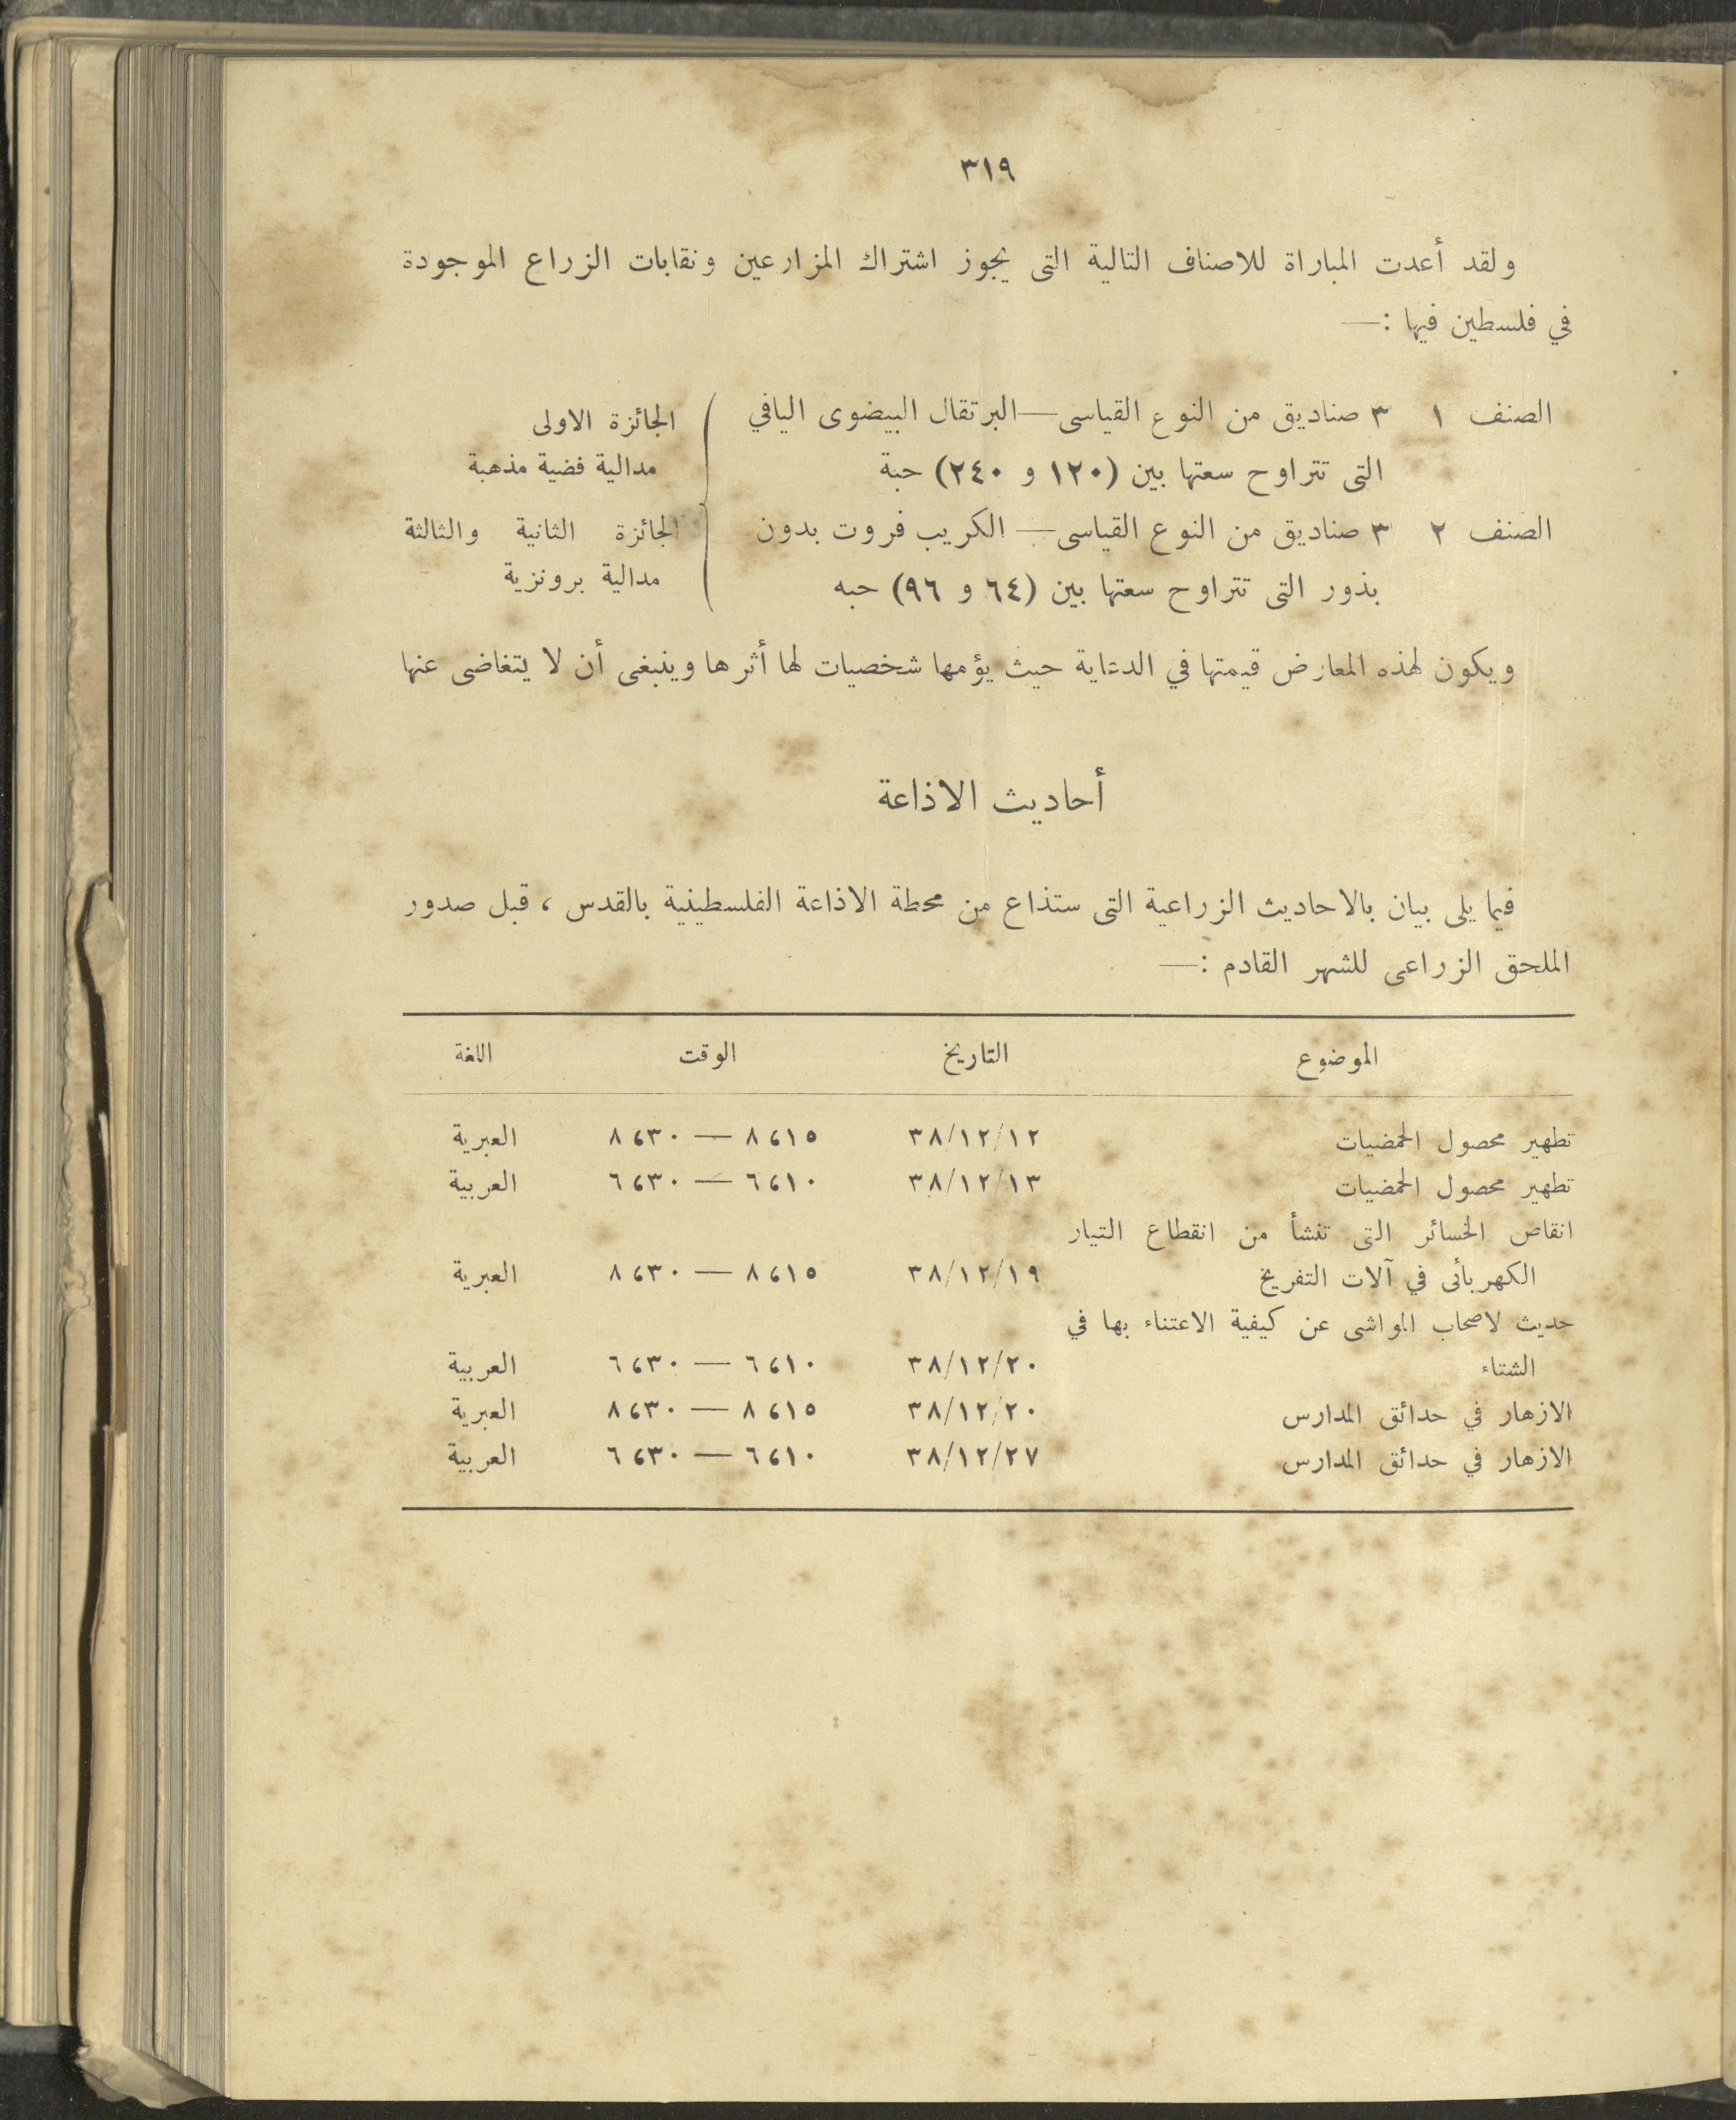 ٣١٩
ولقد أعدت المباراة للاصناف التالية التى يجوز اشتراك المزارعين ونقابات الزراع الموجودة
في فلسطين فيها :—
الصنف ١ ٣ صناديق من النوع القياسى—البرتقال البيضوى اليافي
التى تتراوح سعتها بين (١٢٠ و ٢٤٠) حبة
الصنف ٢ ٣ صناديق من النوع القياسى— الكريب فروت بدون
بذور التى تتراوح سعتها بين (٦٤ و ٩٦) حبه
الجائزة الاولى
مدالية فضية مذهبة
الجائزة الثانية والثالثة
مدالية برونزية
ويكون لهذه المعارض قيمتها في الدعاية حيث يؤمها شخصيات لها أثرها وينبغى أن لا يتغاضى عنها
أحاديث الاذاعة
فيما يلى بيان بالاحاديث الزراعية التى ستذاع من محطة الاذاعة الفلسطينية بالقدس ، قبل صدور
الملحق الزراعى للشهر القادم :—
الموضوع التاريخ الوقت اللغة
تطهير محصول الحمضيات ٣٨/١٢/١٢ ٨،١٥ — ٨،٣٠ العبرية
تطهير محصول الحمضيات ٣٨/١٢/١٣ ٦،١٠ — ٦،٣٠ العربية
انقاص الخسائر التى تنشأ من انقطاع التيار
الكهربائى في آلات التفريخ ٣٨/١٢/١٩ ٨،١٥ — ٨،٣٠ العبرية
حديث لاصحاب المواشى عن كيفية الاعتناء بها في
الشتاء ٣٨/١٢/٢٠ ٦،١٠ — ٦،٣٠ العربية
الازهار في حدائق المدارس ٣٨/١٢/٢٠ ٨،١٥ — ٨،٣٠ العبرية
الازهار في حدائق المدارس ٣٨/١٢/٢٧ ٦،١٠ — ٦،٣٠ العربية